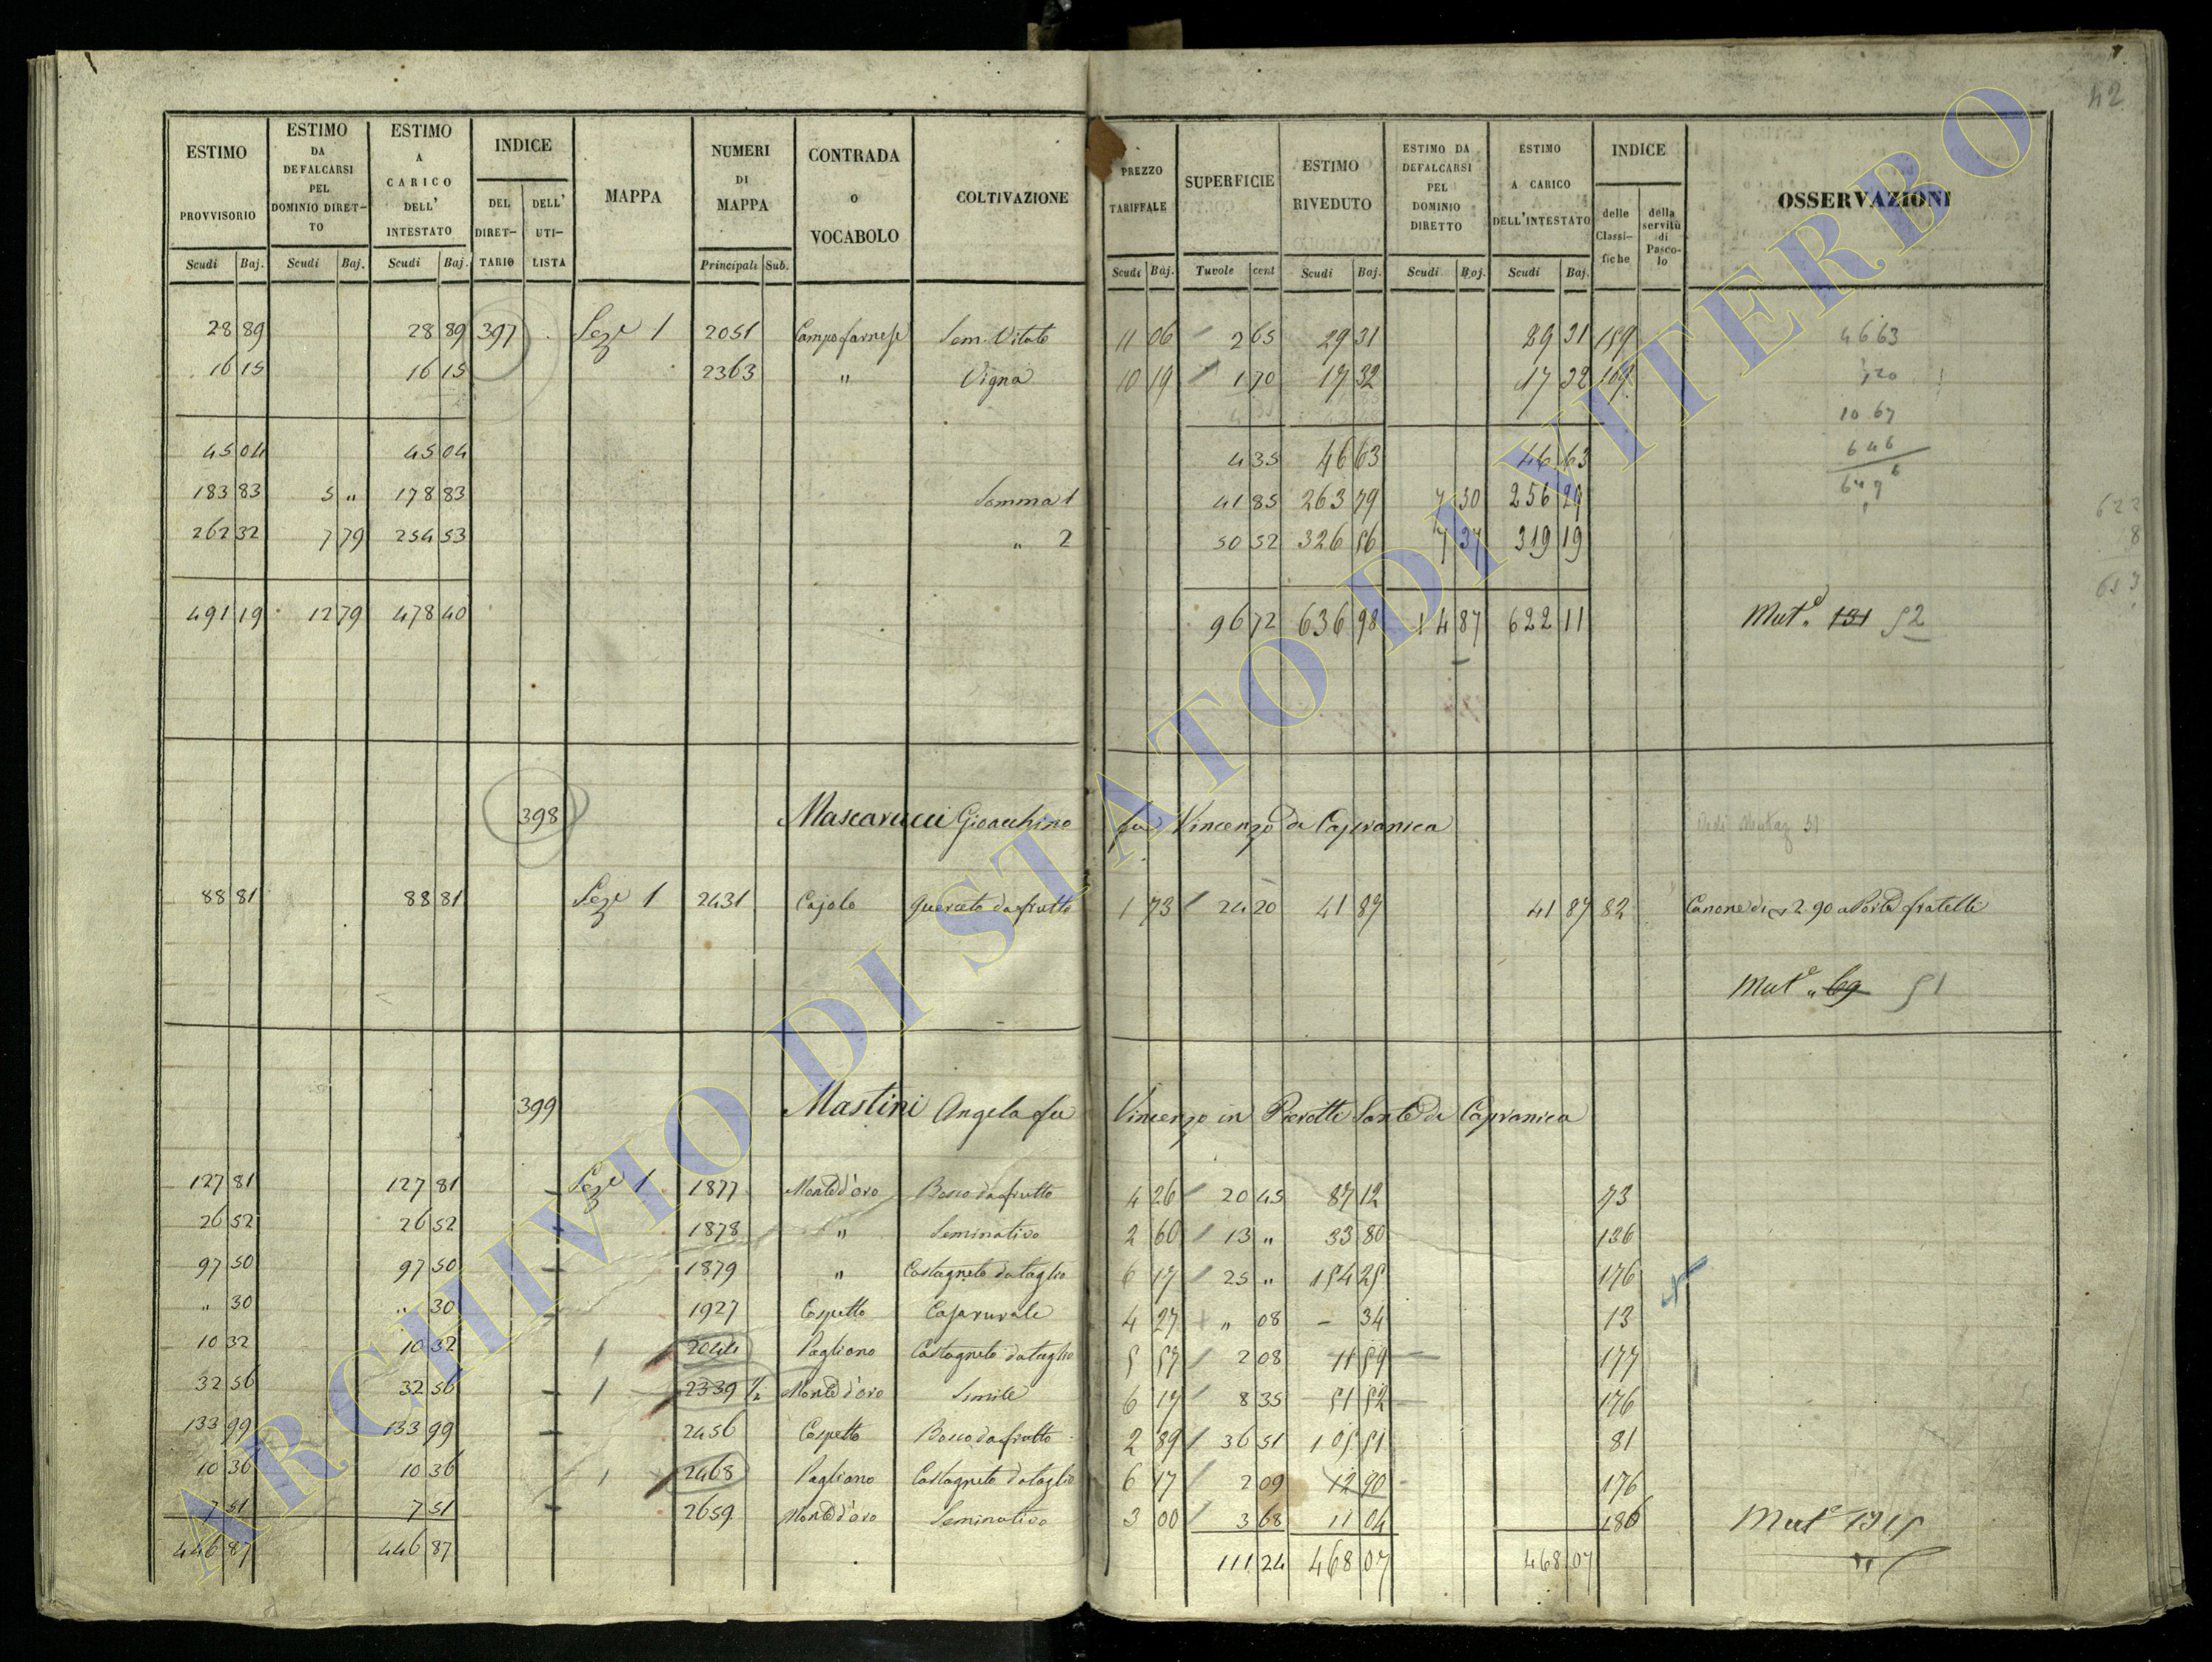 42
ESTIMO PROVVISORIO Scudi Baj.
ESTIMO DA DEFALCARSI PEL DOMINIO DIRET-TO Scudi Baj.
ESTIMO A CARICO DELL' INTESTATO Scudi Baj.
INDICE DEL DIRET-TARIO DELL' UTI-LISTA
MAPPA
NUMERI DI MAPPA Principali Sub.
CONTRADA o VOCABOLO
COLTIVAZIONE
PREZZO TARIFFALE Scudi Baj.
SUPERFICIE Tavole cent
ESTIMO RIVEDUTO Scudi Baj.
ESTIMO DA DEFALCARSI PEL DOMINIO DIRETTO Scudi Baj.
ESTIMO A CARICO DELL'INTESTATO Scudi Baj.
INDICE delle Classi-fiche della servitù di Pasco-lo
OSSERVAZIONI
28 89 28 89 397 Sez.e 1 2051 Campo farnese Sem. Vitato 11 06 2 65 29 31 29 31 159 46 63
16 15 16 15 2363 " Vigna 10 19 1 70 17 32 17 32 169 , 20
10 67
45 04 45 04 4 35 46 63 46 63 6 46
183 83 5 " 178 83 Somma 1 41 85 263 79 7 30 256 29 649
262 32 7 79 254 53 " 2 50 52 326 56 7 37 319 19
491 19 12 79 478 40 96 72 636 98 14 87 622 11 Mut.e 131 52
398 Mascarucci Gioacchino fu Vincenzo da Capranica Vedi Mutaz 51
88 81 88 81 Sez.e 1 2431 Cajolo Querceto da frutto 1 73 24 20 41 87 41 87 82 Canone di 2.90 a Porta fratelli
Mut.e " 69 51
399 Mastini Angela fu Vincenzo in Pierotti Sante da Capranica
127 81 127 81 Sez.e 1 1877 Monte d'oro Bosco da frutto 4 26 20 45 87 12 73
26 52 26 52 1878 " Seminativo 2 60 13 " 33 80 136
97 50 97 50 1879 " Castagneto da taglio 6 17 25 " 154 25 176
" 30 " 30 1927 Cospetto Casa rurale 4 27 " 08 - 34 13
10 32 10 32 1 2044 Pagliano Castagneto da taglio 5 57 2 08 11 59 177
32 56 32 56 1 2339 1/2 Monte d'oro Simile 6 17 8 35 51 52 176
133 99 133 99 2456 Cospetto Bosco da frutto 2 89 36 51 105 51 81
10 36 10 36 1 2468 Pagliano Castagneto da taglio 6 17 2 09 12 90 176
7 51 7 51 2659 Monte d'oro Seminativo 3 00 3 68 11 04 186 Mut.e 1915
446 87 446 87 111 24 468 07 468 07
ARCHIVIO DI STATO DI VITERBO